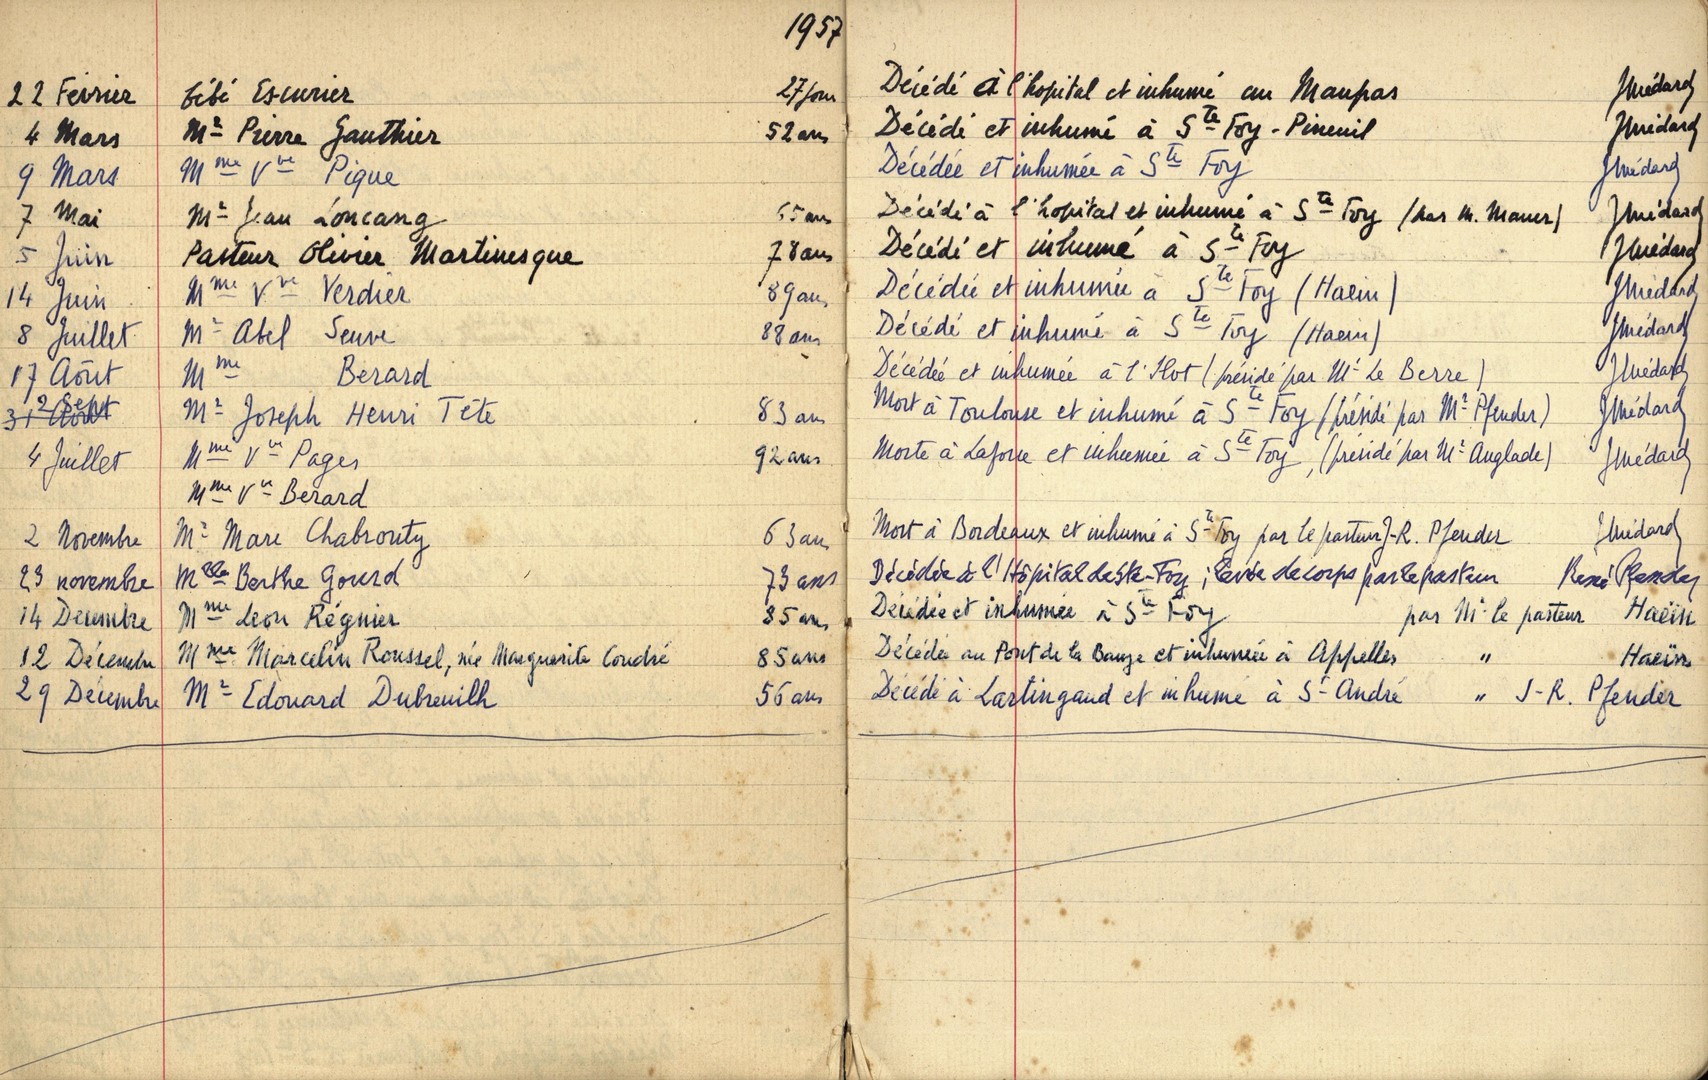 1957
22 Février bébé Escurier 27 jours Décédé à l'hopital et inhumé au Maupas JMédard
4 Mars Mr Pierre Gauthier 52 ans Décédé et inhumé à Ste Foy - Pineuil JMédard
9 Mars Mme Vve Pique Décédée et inhumée à Ste Foy JMédard
7 Mai Mr Jean Loncang ans Décédé à l'hopital et inhumé à Ste Foy (par M. Maner) JMédard
5 Juin Pasteur Olivier Martinesque 78 ans Décédé et inhumé à Ste Foy JMédard
14 Juin Mme Vve Verdier 89 ans Décédée et inhumée à Ste Foy (Haein) JMédard
8 Juillet Mr Abel Seuve 88 ans Décédé et inhumé à Ste Foy (Haein) JMédard
17 Août Mme Berard Décédée et inhumée à l'Ilot (présidé par Mr Le Berre) JMédard
31 Août 2 Sept Mr Joseph Henri Tête 83 ans Mort à Toulouse et inhumé à Ste Foy (présidé par Mr Pfender) JMédard
4 Juillet Mme Vve Pages 92 ans Morte à Laforce et inhumée à Ste Foy, (présidé par Mr Anglade) JMédard
Mme Vve Berard
2 Novembre Mr Marc Chabrouty 63 ans Mort à Bordeaux et inhumé à Ste Foy par le pasteur J-R. Pfender JMédard
23 novembre Melle Berthe Gourd 73 ans Décédée à l'Hôpital de Ste-Foy ; levée de corps par le pasteur René Pfender
14 Décembre Mme Leon Régnier 85 ans Décédée et inhumée à Ste Foy par Mr le pasteur Haein
12 Décembre Mme Marcelin Roussel, née Marguerite Coudré 85 ans Décédée au Pont de la Bauze et inhumée à Appelles " Haein
29 Décembre Mr Edouard Dubreuilh 56 ans Décédé à Lartingaud et inhumé à St André " J-R. Pfender